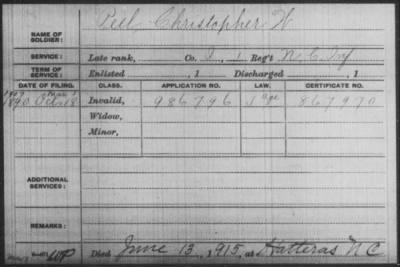 NAME OF SOLDIER: Peel, Christopher W
SERVICE: Late rank, Co. I, 1 Reg't N. C. Inf
TERM OF SERVICE: Enlisted , 1 Discharged , 1
DATE OF FILING. CLASS. APPLICATION NO. LAW. CERTIFICATE NO.
1890 Oct 18 Invalid, 986796 867970
Widow,
Minor,
ADDITIONAL SERVICES:
REMARKS:
Died June 13, 1915, at Hatteras N C